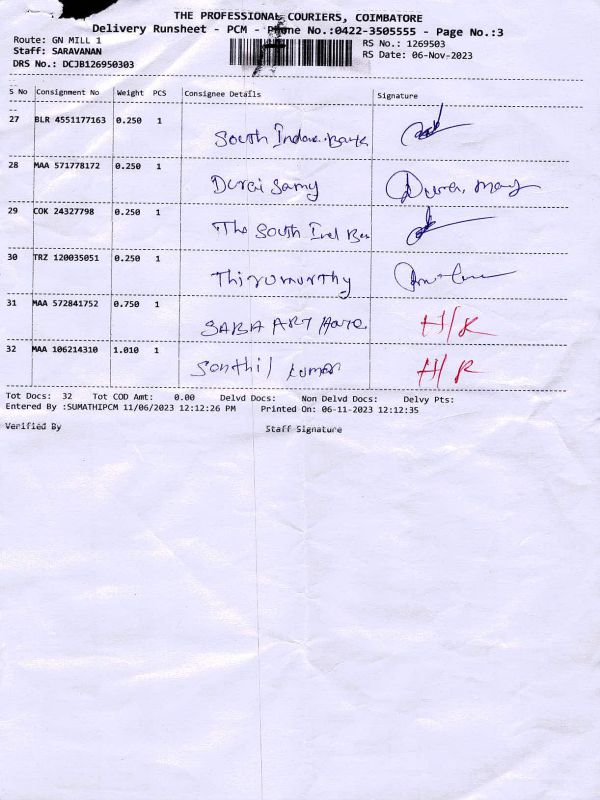 THE PROFESSIONAL COURIERS, COIMBATORE
Delivery Runsheet - PCM - Phone No.:0422-3505555 - Page No.:3
Route: GN MILL 1
RS No.: 1269503
Staff: SARAVANAN
RS Date: 06-Nov-2023
DRS No.: DCJB126950303
S No Consignment No Weight PCS Consignee Details Signature
27 BLR 4551177163 0.250 1 South Indian Bank
28 MAA 571778172 0.250 1 Durai Samy
29 COK 24327798 0.250 1 The South Ind Ban
30 TRZ 120035051 0.250 1 Thirumurthy
31 MAA 572841752 0.750 1 SABA ART H/R
32 MAA 106214310 1.010 1 Senthil kumar H/R
Tot Docs: 32 Tot COD Amt: 0.00 Delvd Docs: Non Delvd Docs: Delvy Pts:
Entered By :SUMATHIPCM 11/06/2023 12:12:26 PM Printed On: 06-11-2023 12:12:35
Verified By Staff Signature